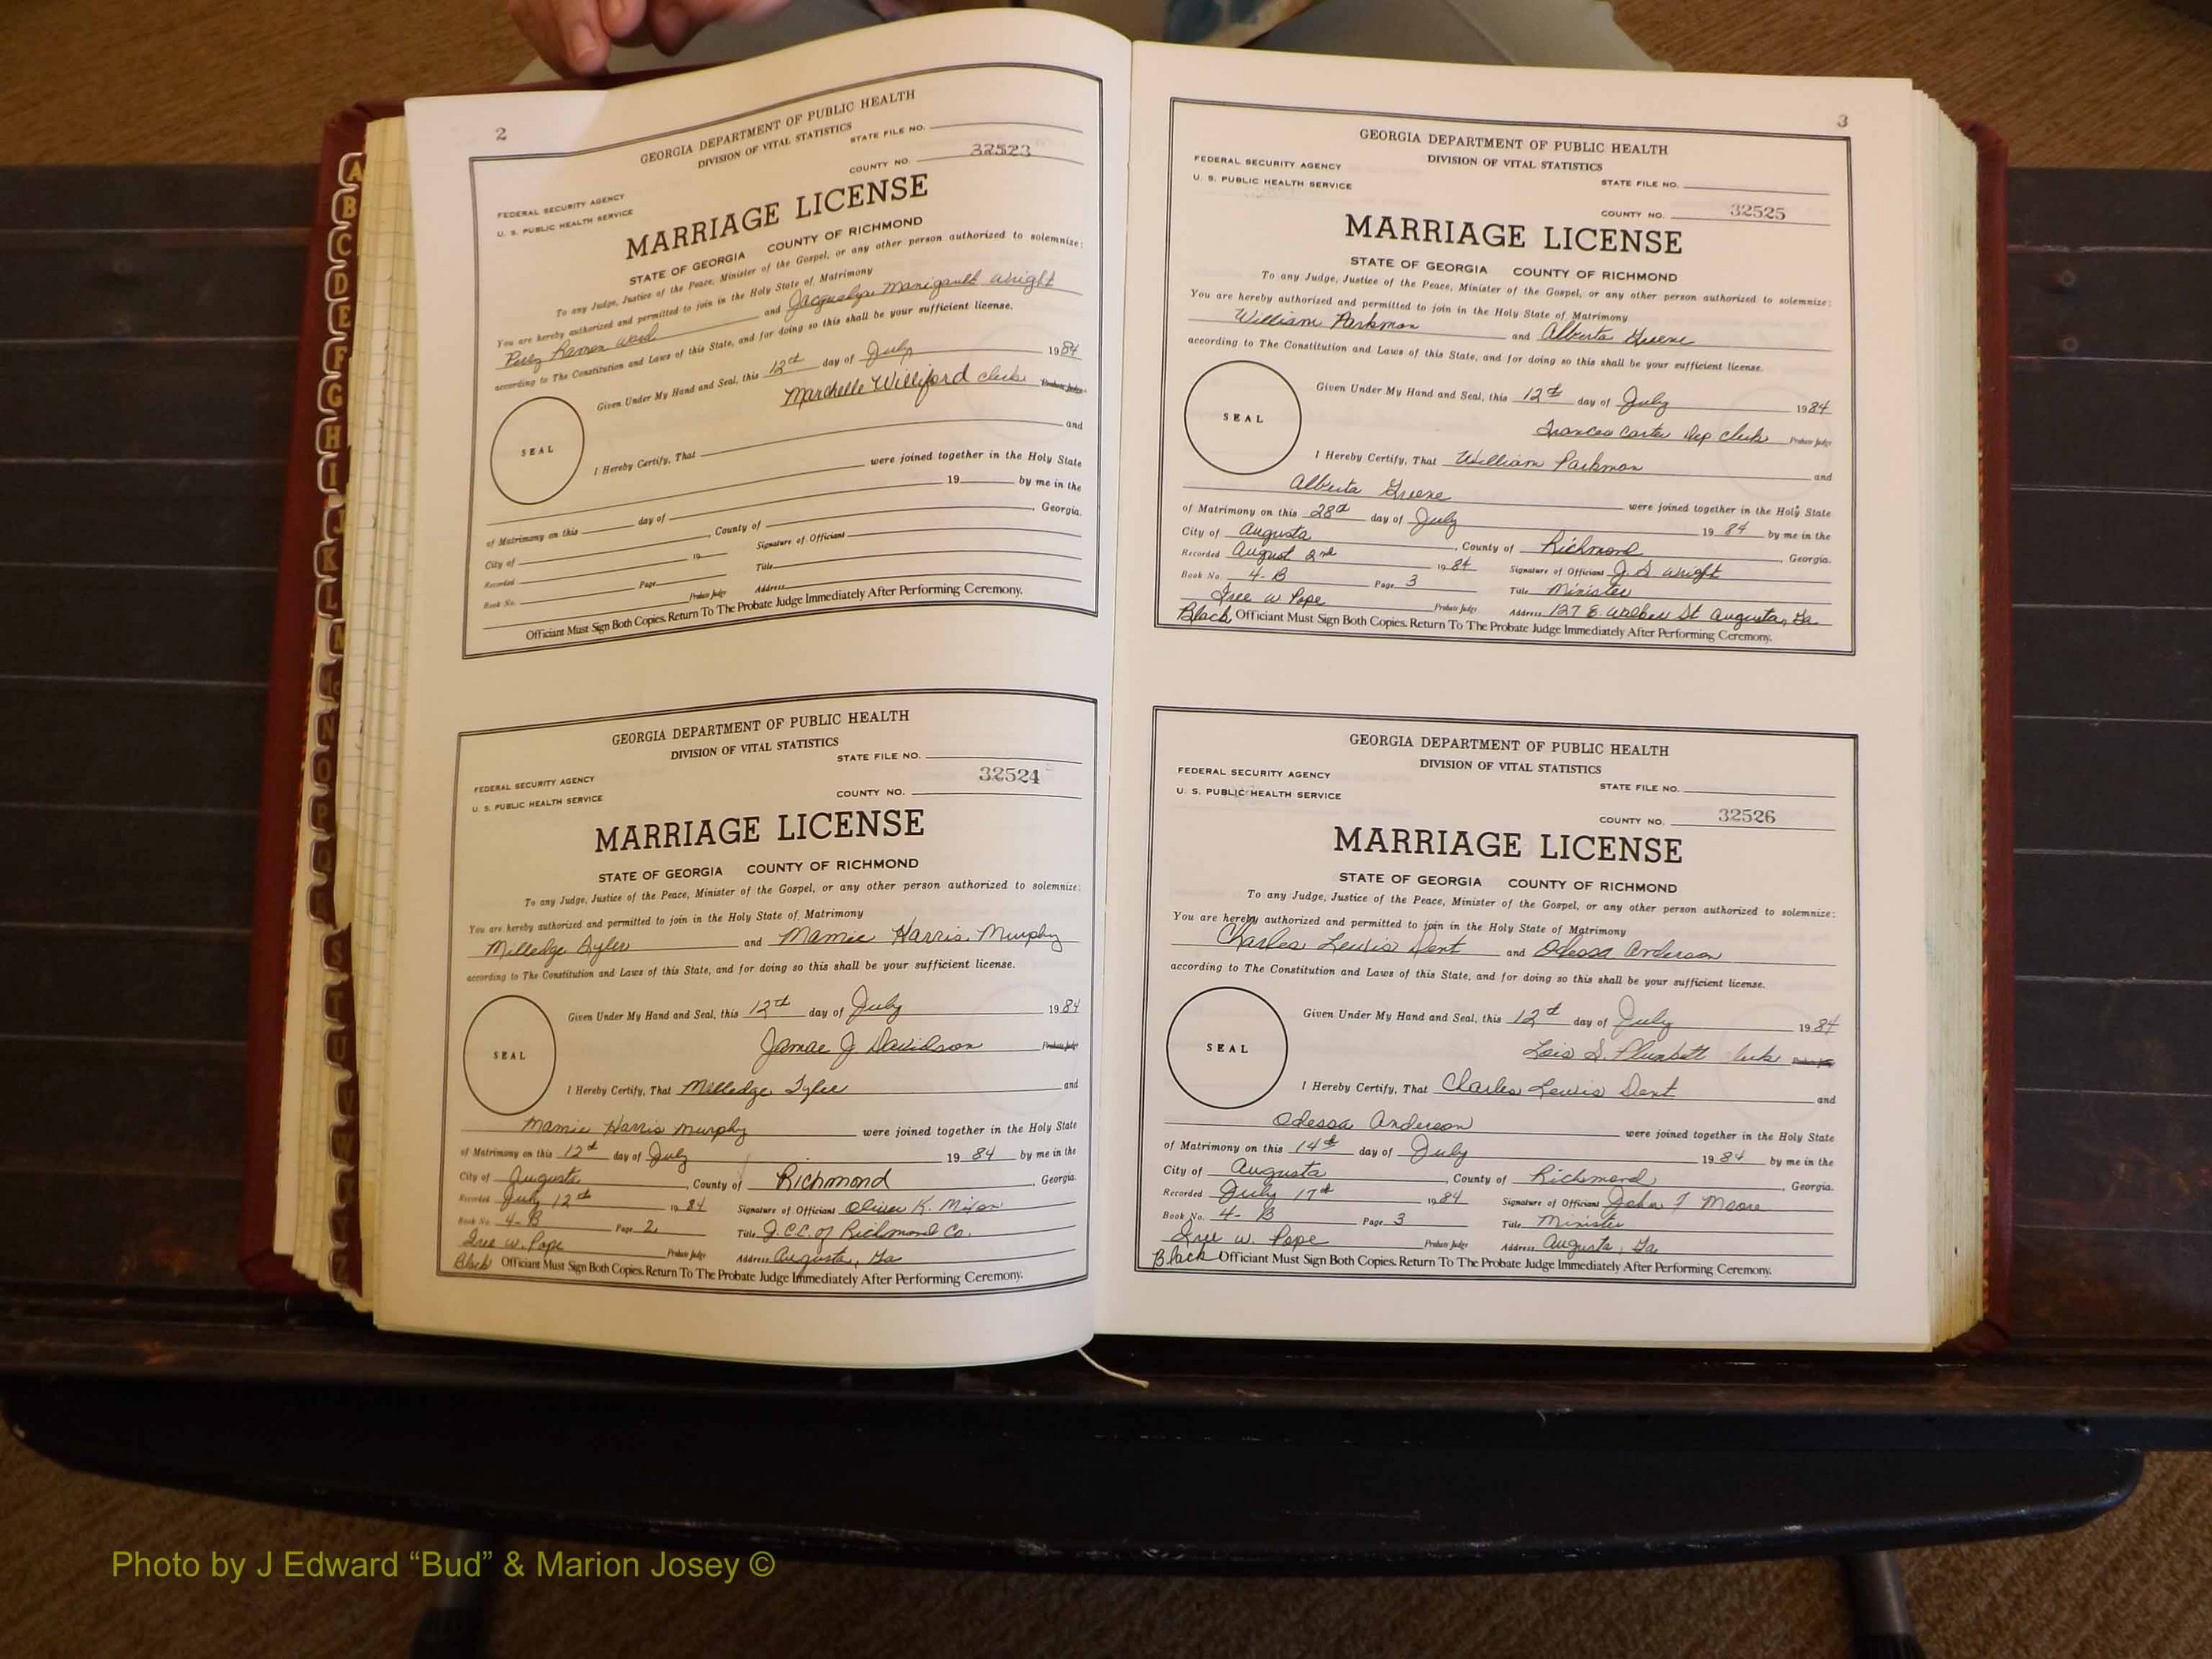 2
GEORGIA DEPARTMENT OF PUBLIC HEALTH
DIVISION OF VITAL STATISTICS
STATE FILE NO.
COUNTY NO. 32523
FEDERAL SECURITY AGENCY
U. S. PUBLIC HEALTH SERVICE
MARRIAGE LICENSE
STATE OF GEORGIA COUNTY OF RICHMOND
To any Judge, Justice of the Peace, Minister of the Gospel, or any other person authorized to solemnize:
You are hereby authorized and permitted to join in the Holy State of Matrimony
Ramon Ward and Jacquelyn Manigault Wright
according to The Constitution and Laws of this State, and for doing so this shall be your sufficient license.
Given Under My Hand and Seal, this 12th day of July 1984
Marchelle Williford clerk Probate Judge
SEAL
I Hereby Certify, That and
were joined together in the Holy State
of Matrimony on this day of 19 by me in the
City of , County of , Georgia.
Recorded 19 Signature of Officiant
Book No. Page Title
Probate Judge Address
Officiant Must Sign Both Copies. Return To The Probate Judge Immediately After Performing Ceremony.
GEORGIA DEPARTMENT OF PUBLIC HEALTH
DIVISION OF VITAL STATISTICS
STATE FILE NO.
32524
FEDERAL SECURITY AGENCY
U. S. PUBLIC HEALTH SERVICE
COUNTY NO.
MARRIAGE LICENSE
STATE OF GEORGIA COUNTY OF RICHMOND
To any Judge, Justice of the Peace, Minister of the Gospel, or any other person authorized to solemnize:
You are hereby authorized and permitted to join in the Holy State of Matrimony
Milledge Tyler and Mamie Harris Murphy
according to The Constitution and Laws of this State, and for doing so this shall be your sufficient license.
Given Under My Hand and Seal, this 12th day of July 1984
J Davidson Probate Judge
SEAL
I Hereby Certify, That Milledge Tyler and
Mamie Harris Murphy were joined together in the Holy State
of Matrimony on this 12th day of July 19 84 by me in the
City of Augusta , County of Richmond , Georgia.
Recorded July 12th 19 84 Signature of Officiant Oliver K. Mixon
Book No. 4-B Page 2 Title J.C.C. of Richmond Co.
Iree W. Pope Probate Judge Address Augusta, Ga
Black Officiant Must Sign Both Copies. Return To The Probate Judge Immediately After Performing Ceremony.
3
GEORGIA DEPARTMENT OF PUBLIC HEALTH
DIVISION OF VITAL STATISTICS
FEDERAL SECURITY AGENCY
U. S. PUBLIC HEALTH SERVICE
STATE FILE NO.
COUNTY NO. 32525
MARRIAGE LICENSE
STATE OF GEORGIA COUNTY OF RICHMOND
To any Judge, Justice of the Peace, Minister of the Gospel, or any other person authorized to solemnize:
You are hereby authorized and permitted to join in the Holy State of Matrimony
William Parkman and Alberta Greene
according to The Constitution and Laws of this State, and for doing so this shall be your sufficient license.
Given Under My Hand and Seal, this 12th day of July 1984
SEAL
Frances Carter Dep Clerk Probate Judge
I Hereby Certify, That William Parkman and
Alberta Greene were joined together in the Holy State
of Matrimony on this 28th day of July 19 84 by me in the
City of Augusta , County of Richmond , Georgia.
Recorded August 2nd 19 84 Signature of Officiant J. S. Wright
Book No. 4-B Page 3 Title Minister
Iree W Pope Probate Judge Address 127 E. Walker St Augusta, Ga.
Black Officiant Must Sign Both Copies. Return To The Probate Judge Immediately After Performing Ceremony.
GEORGIA DEPARTMENT OF PUBLIC HEALTH
DIVISION OF VITAL STATISTICS
FEDERAL SECURITY AGENCY
U. S. PUBLIC HEALTH SERVICE
STATE FILE NO.
COUNTY NO. 32526
MARRIAGE LICENSE
STATE OF GEORGIA COUNTY OF RICHMOND
To any Judge, Justice of the Peace, Minister of the Gospel, or any other person authorized to solemnize:
You are hereby authorized and permitted to join in the Holy State of Matrimony
Charles Lewis Dent and Odessa Anderson
according to The Constitution and Laws of this State, and for doing so this shall be your sufficient license.
Given Under My Hand and Seal, this 12th day of July 1984
SEAL
Lois S. Plunkett Probate Judge
I Hereby Certify, That Charles Lewis Dent and
Odessa Anderson were joined together in the Holy State
of Matrimony on this 14th day of July 19 84 by me in the
City of Augusta , County of Richmond , Georgia.
Recorded July 17th 19 84 Signature of Officiant John F Moore
Book No. 4-B Page 3 Title Minister
Iree W. Pope Probate Judge Address Augusta, Ga
Black Officiant Must Sign Both Copies. Return To The Probate Judge Immediately After Performing Ceremony.
A
B
C
D
E
F
G
H
I
J
K
L
M
Mc
N
O
P
Q
R
S
T
U
V
W
Photo by J Edward “Bud” & Marion Josey ©